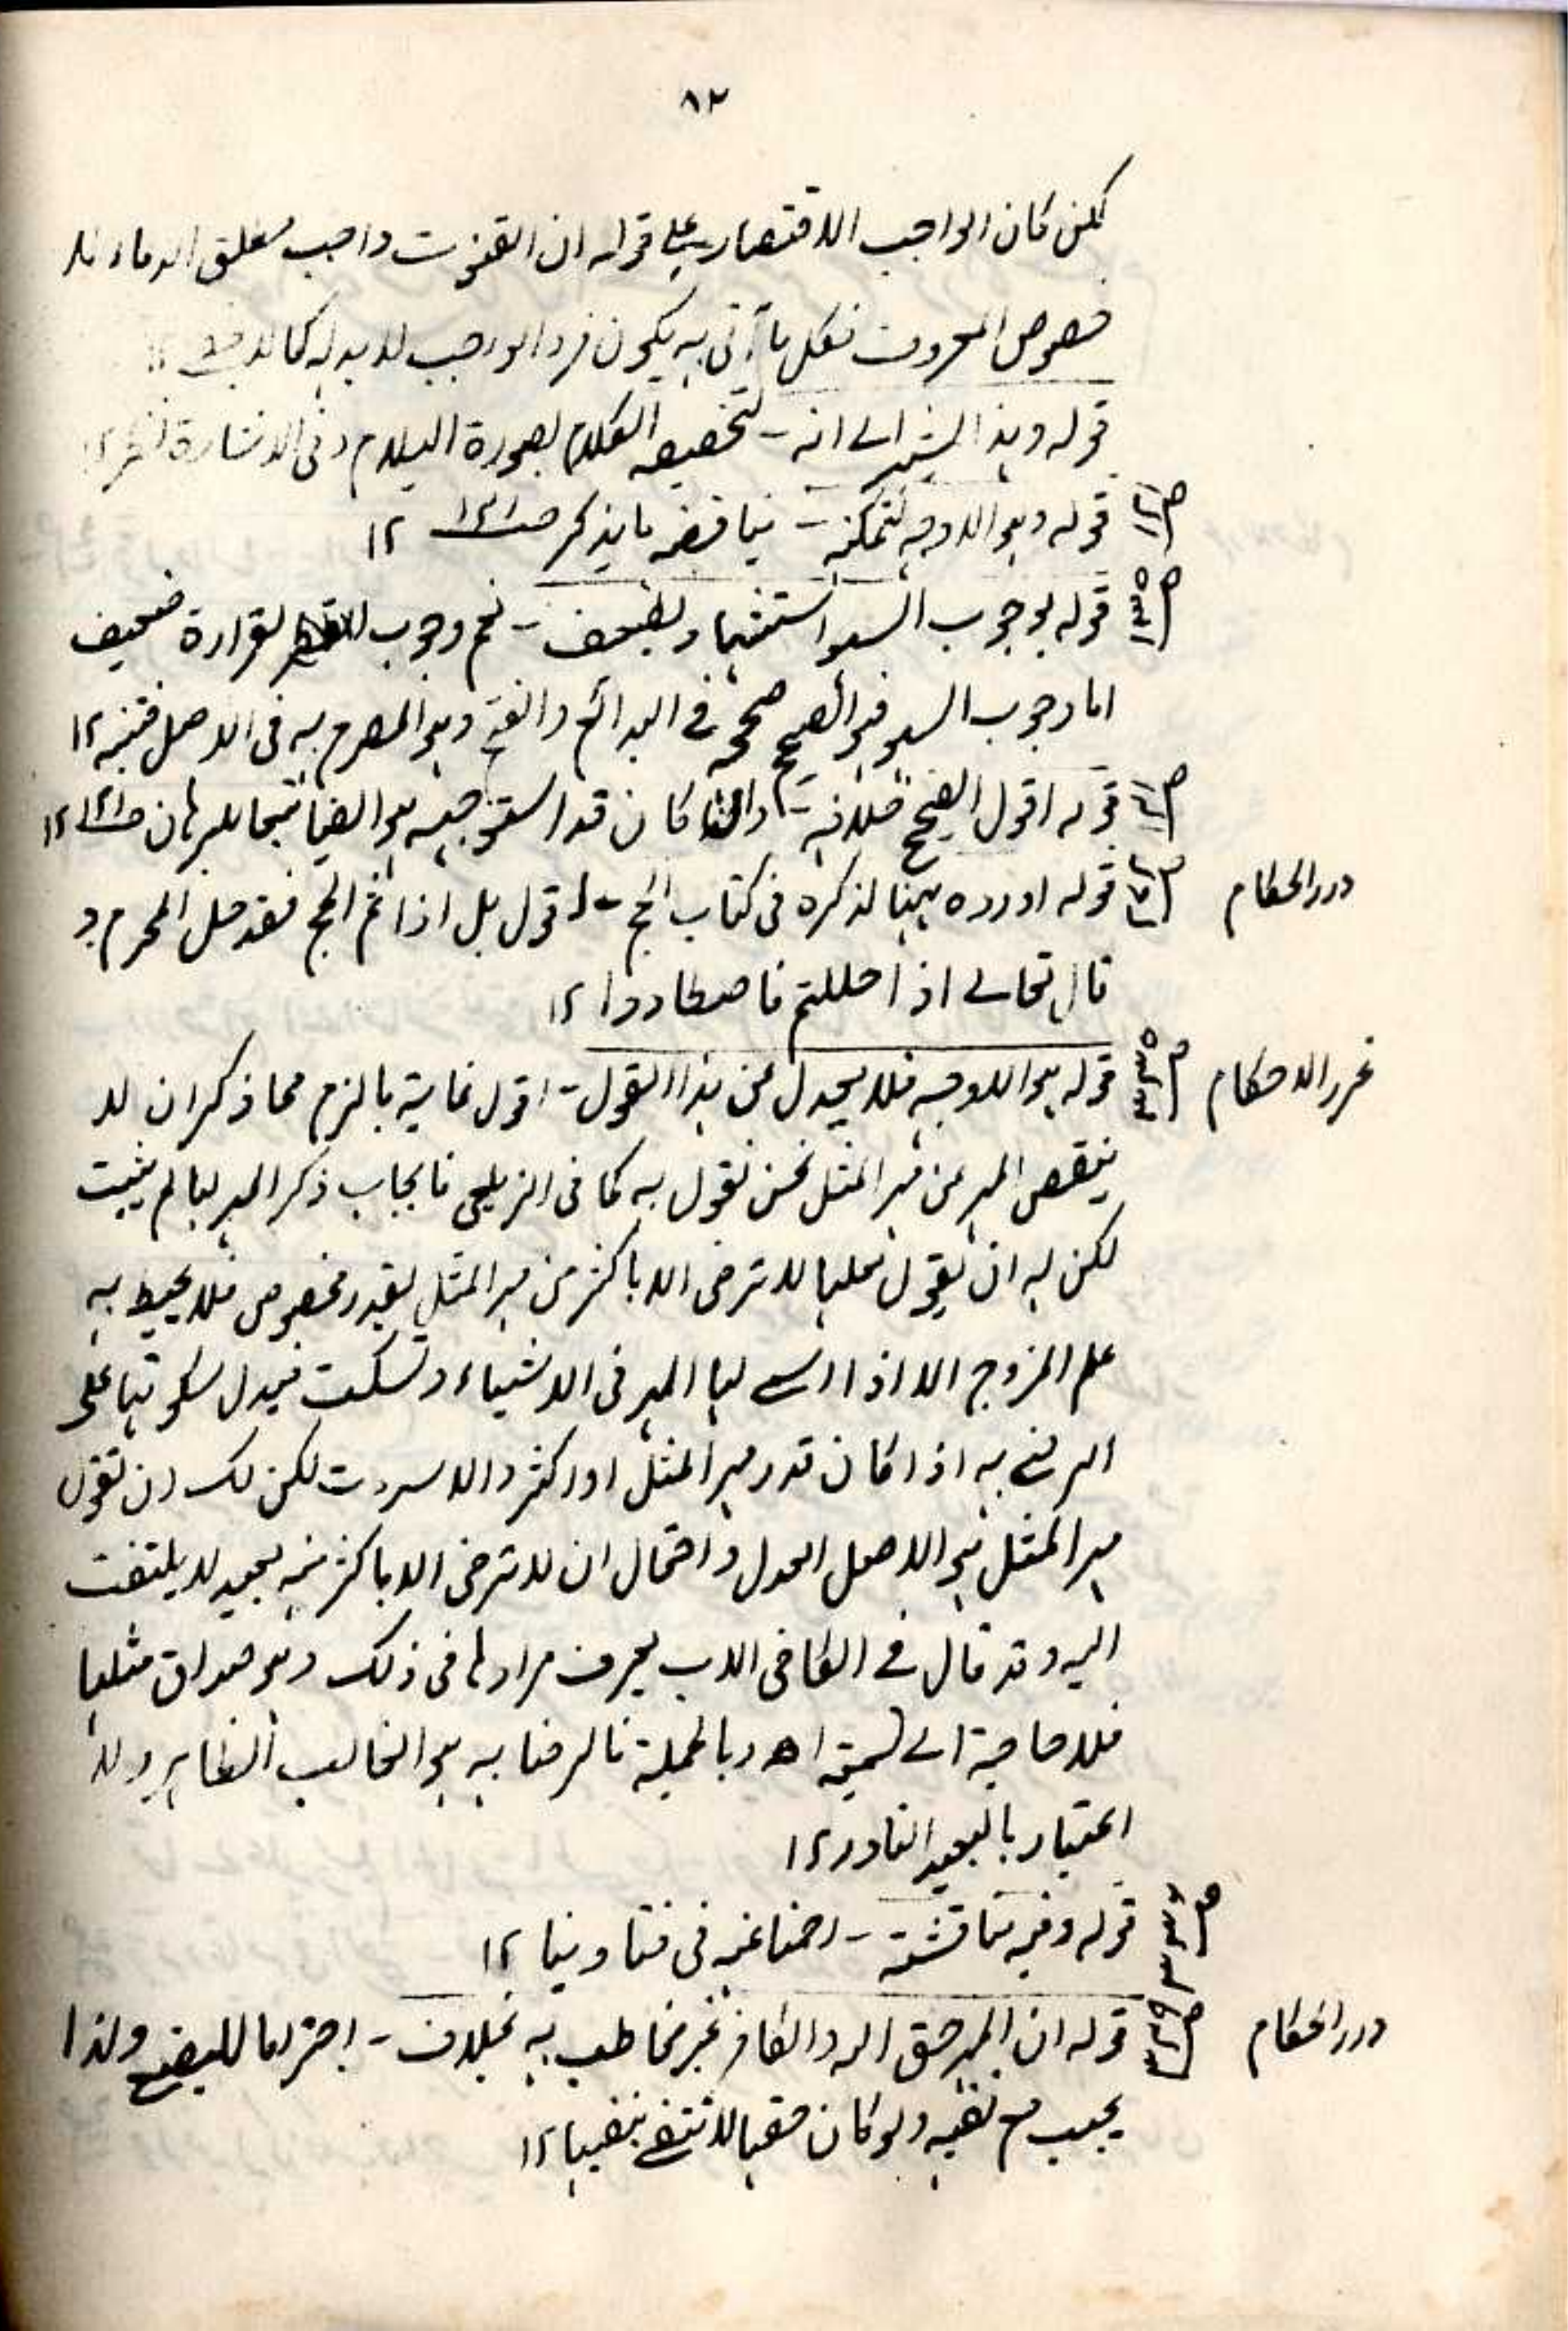 ٨٢
لكن كان الواجب الاقتصار على قوله ان القنوت واجب مطلق الدعاء لا
خصوص المعروف فكل ما أتى به يكون فرد الواجب لا بدله كالا
قوله وهذا يشير الى انه - لتخصيصه الكلام بصورة السلام وفى الاشارة نظر ١٢
ص قوله وهو الاوجه لتمكنه - يناقضه ما يذكر ص١٢١ ١٢
ص قوله بوجوب السهو استثناء وبضعف - نعم وجوب لقراءة ضعيف
اما وجوب السهو فهو الصحيح صححه فى البدائع والفتح وهو المصرح به فى الاصل فتنبه ١٢
ص قوله اقول الصحيح خلافه - وان كان قد استوجبه هو ايضا تبعا للبرهان ص١٢١ ١٢
درر الحكام ص قوله اورده ههنا لذكره فى كتاب الحج - اقول بل اذا تم الحج فقد حل المحرم و
قال تعالى اذا حللتم فاصطادوا ١٢
غرر الاحكام ص قوله هو الاوجه فلا يعدل عن هذا القول - اقول غاية ما لزم مما ذكر ان لا
ينقص المهر عن مهر المثل نحن نقول به كما فى الزيلعى فايجاب ذكر المهر لها لم يثبت
لكن له ان يقول لعلها لا ترضى الا باكثر من مهر المثل بقدر مخصوص فلا يحيط به
علم المزوج الا اذا سمى لها المهر فى الاشياء وتسكت فيدل سكوتها على
الرضى به اذا كان قدر مهر المثل او اكثر والا لكن لك ان تقول
مهر المثل هو الاصل العدل واحتمال ان لا ترضى الا باكثر منه بعيد لا يلتفت
اليه وقد قال فى الكافى الاب يعرف مرادها فى ذلك وهو صداق مثلها
فلا حاجة الى تسميته اھ وبالجملة فالرضا به هو الغالب الظاهر ولا
اعتبار بالبعيد النادر ١٢
ص قوله وفيه مناقشة - احنا عنه فى فتاوينا ١٢
درر الحكام ص قوله ان المهر حق الله والكافر غير مخاطب به بخلاف - احتراما للبضع ولذا
يجب مع نفيه ولو كان حقها لانتفى بنفيها ١٢